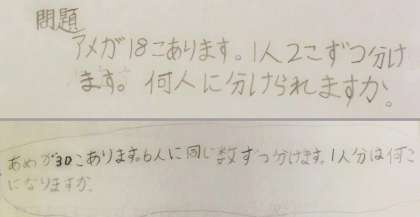 問題
アメが18こあります。1人2こずつ分け
ます。何人に分けられますか。
あめが30こあります。6人に同じ数ずつ分けます。1人分は何こ
になりますか。